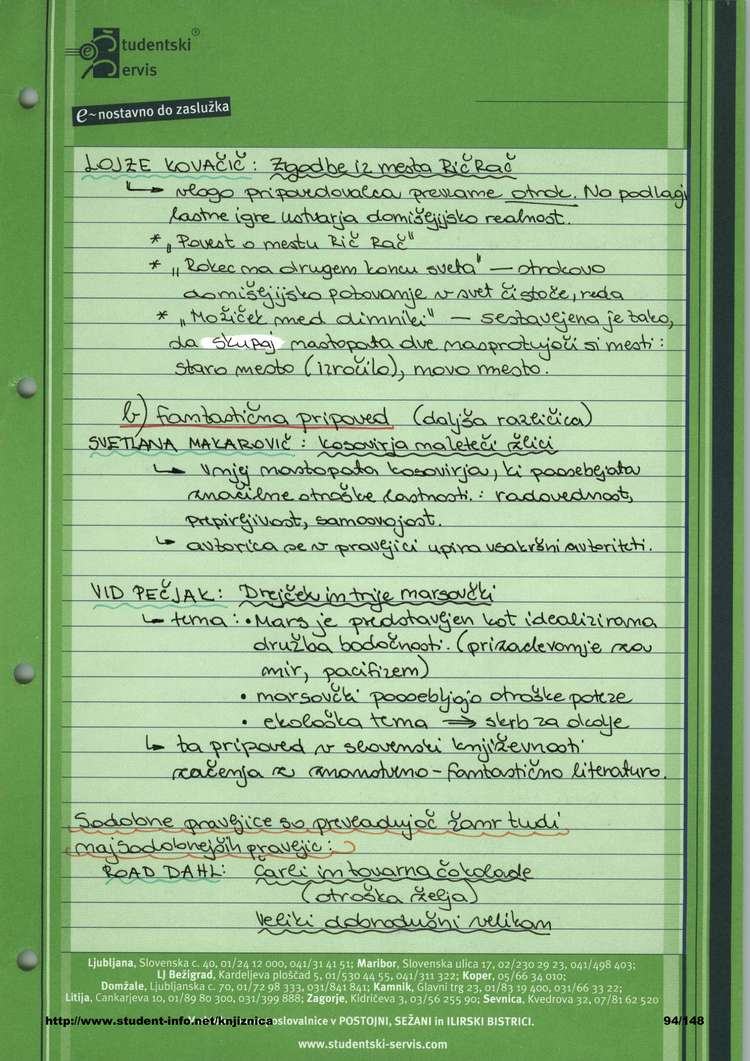 Študentski®
Servis
e~nostavno do zaslužka
LOJZE KOVAČIČ: Zgodbe iz mesta RičRač
↳ vlogo pripovedovalca prevzame otrok. Na podlagi
lastne igre ustvarja domišljijsko realnost.
* „Povest o mestu Rič Rač"
* „Rokec na drugem koncu sveta" – otrokovo
domišljijsko potovanje v svet čistoče, reda
* „Možiček med dimniki" – sestavljena je tako,
da skupaj nastopata dve nasprotujoči si mesti:
staro mesto (izročilo), novo mesto.
b) fantastična pripoved (daljša različica)
SVETLANA MAKAROVIČ: Kosovirja na leteči žlici
↳ V njej nastopata kosovirja, ki poosebljata
značilne otroške lastnosti.: radovednost,
prepirljivost, samosvojost.
↳ avtorica se v pravljici upira vsakršni avtoriteti.
VID PEČJAK: Drejček in trije marsovčki
↳ tema: • Mars je predstavljen kot idealizirana
družba bodočnosti. (prizadevanje za
mir, pacifizem)
• marsovčki poosebljajo otroške poteze
• ekološka tema ⇒ skrb za okolje
↳ ta pripoved v slovenski književnosti
začenja z znanstveno-fantastično literaturo.
Sodobne pravljice so prevladujoč žanr tudi
najsodobnejših pravljic:
ROAD DAHL: Čarli in tovarna čokolade
(otroška želja)
Veliki dobrodušni velikan
Ljubljana, Slovenska c. 40, 01/24 12 000, 041/31 41 51; Maribor, Slovenska ulica 17, 02/230 29 23, 041/498 403;
LJ Bežigrad, Kardeljeva ploščad 5, 01/530 44 55, 041/311 322; Koper, 05/66 34 010;
Domžale, Ljubljanska c. 70, 01/72 98 333, 031/841 841; Kamnik, Glavni trg 23, 01/83 19 400, 031/66 33 22;
Litija, Cankarjeva 10, 01/89 80 300, 031/399 888; Zagorje, Kidričeva 3, 03/56 255 90; Sevnica, Kvedrova 32, 07/81 62 520
http://www.student-info.net/knjiznica poslovalnice v POSTOJNI, SEŽANI in ILIRSKI BISTRICI. 94/148
www.studentski-servis.com